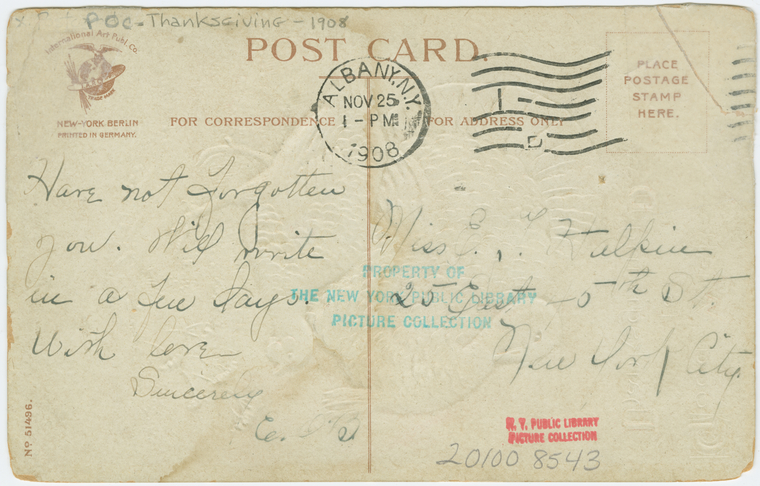 POC-Thanksgiving-1908
International Art Publ. Co.
TRADE MARK
NEW-YORK BERLIN
PRINTED IN GERMANY.
POST CARD.
ALBANY, N.Y.
NOV 25
1-PM
1908
PLACE
POSTAGE
STAMP
HERE.
FOR CORRESPONDENCE
FOR ADDRESS ONLY
Have not forgotten
you. Will write
in a few days.
With love
Sincerely
E. B
Miss E.
25 East 5th St.
New York City
PROPERTY OF
THE NEW YORK PUBLIC LIBRARY
PICTURE COLLECTION
No 51496.
N. Y. PUBLIC LIBRARY
PICTURE COLLECTION
20100 8543